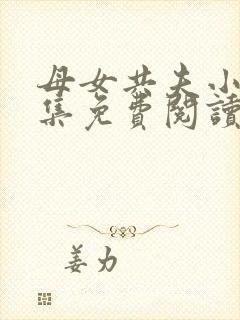 母女共夫小
集免費閱讀
姜力